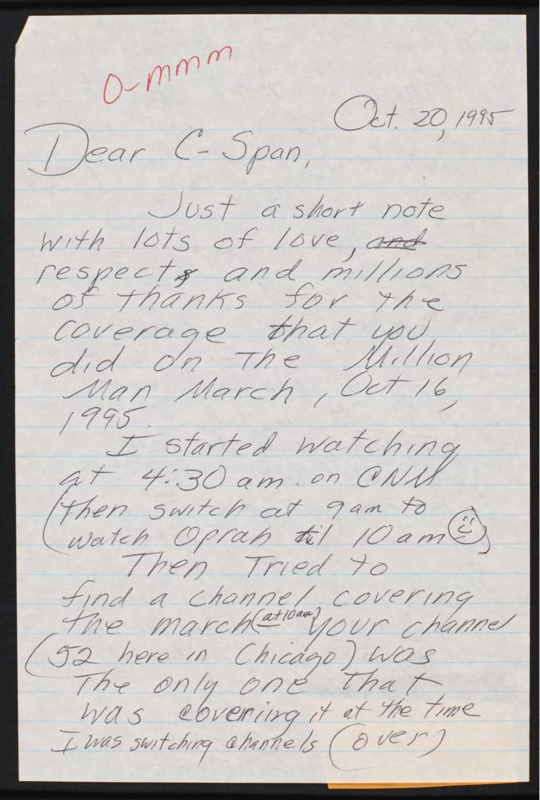 O-mmm
Oct. 20, 1995
Dear C-Span,
Just a short note
with lots of love, and
respect, and millions
of thanks for the
coverage that you
did on The Million
Man March, Oct 16,
1995.
I started watching
at 4:30 am. on CNN
(then switch at 9am to
watch Oprah til 10 am)
Then Tried to
find a channel covering
the march (at 10am) your channel
(52 here in Chicago) was
The only one that
was covering it at the time
I was switching channels (over)